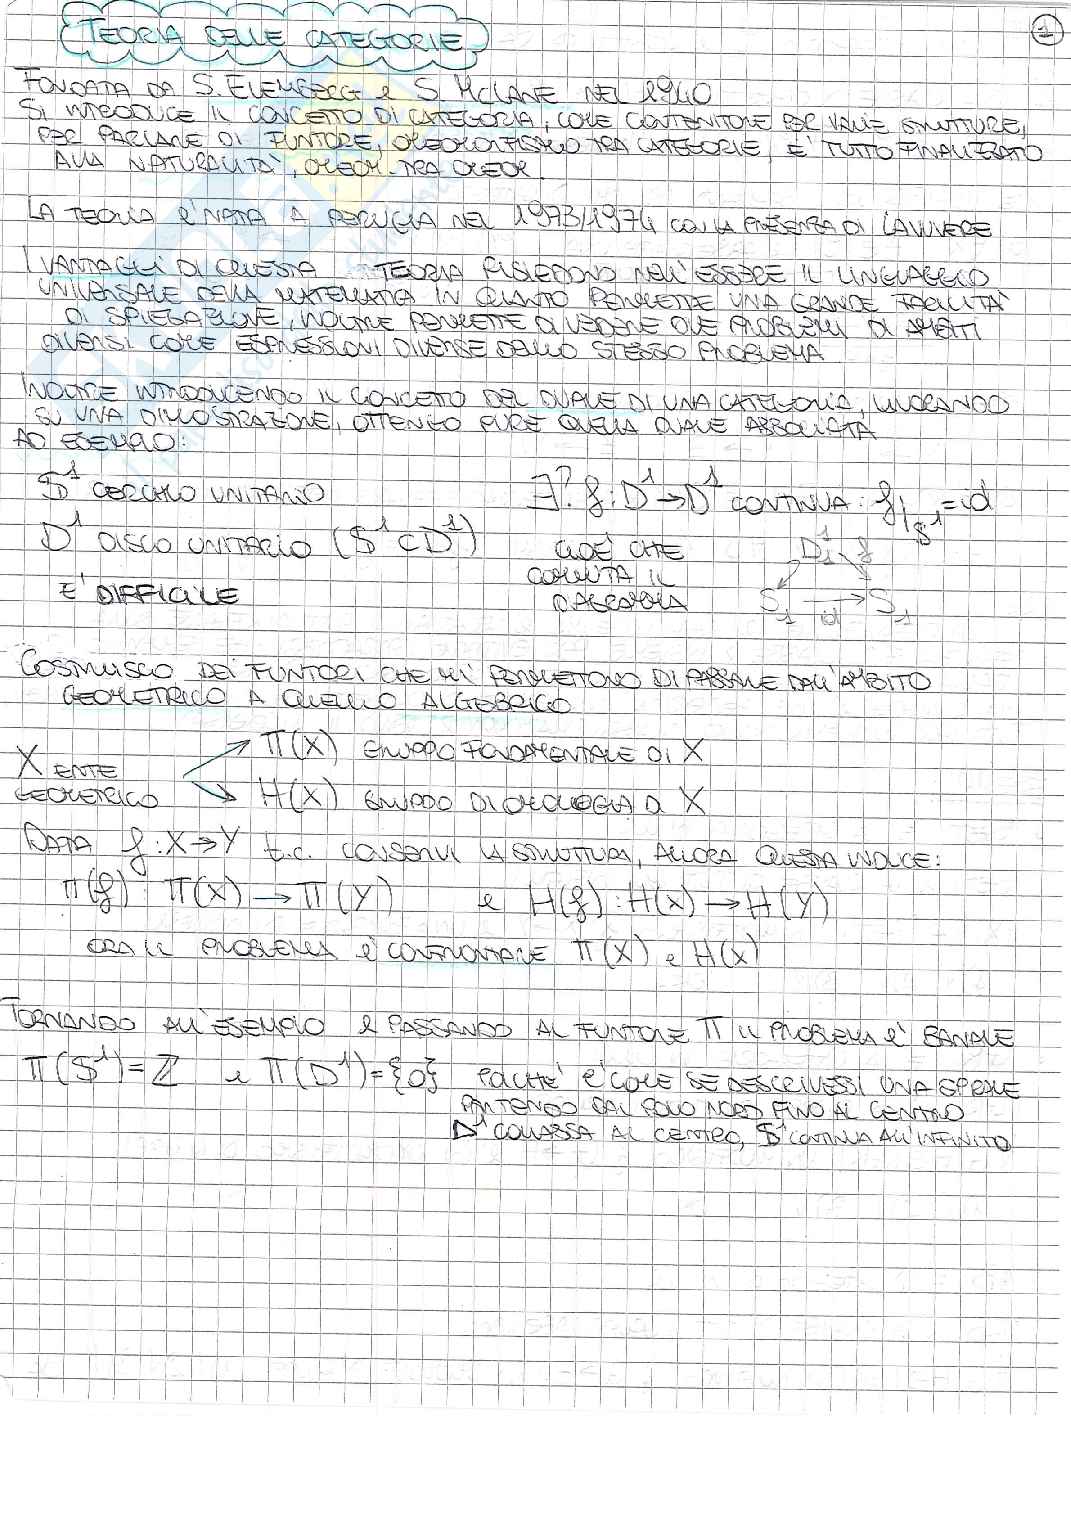 TEORIA DELLE CATEGORIE
1
FONDATA DA S. EILEMBERG E S. MCLANE NEL 1940
SI INTRODUCE IL CONCETTO DI CATEGORIA, COME CONTENITORE PER VARIE STRUTTURE,
PER PARLARE DI FUNTORE, OMOMORFISMO TRA CATEGORIE, E' TUTTO FINALIZZATO
ALLA NATURALITA', OMEOM. TRA OMEOM.
LA TEORIA E' NATA A PERUGIA NEL 1973/1974 CON LA PRESENZA DI LAWVERE
I VANTAGGI DI QUESTA TEORIA RISIEDONO NELL'ESSERE IL LINGUAGGIO
UNIVERSALE DELLA MATEMATICA IN QUANTO PERMETTE UNA GRANDE FACILITA'
DI SPIEGAZIONE, INOLTRE PERMETTE DI VEDERE DUE PROBLEMI DI AMBITI
DIVERSI COME ESPRESSIONI DIVERSE DELLO STESSO PROBLEMA
INOLTRE INTRODUCENDO IL CONCETTO DEL DUALE DI UNA CATEGORIA, LAVORANDO
SU UNA DIMOSTRAZIONE, OTTENGO PURE QUELLA DUALE ASSOCIATA
AD ESEMPIO:
S¹ CERCHIO UNITARIO
∃? f: D¹→D¹ CONTINUA: f|S¹ = id
D¹ DISCO UNITARIO (S¹⊂D¹)
CIOE' CHE
COMMUTA IL
DIAGRAMMA
D¹ f
S₁ → S₁
id
E' DIFFICILE
COSTRUISCO DEI FUNTORI CHE MI PERMETTONO DI PASSARE DALL'AMBITO
GEOMETRICO A QUELLO ALGEBRICO
X ENTE
GEOMETRICO
π(X) GRUPPO FONDAMENTALE DI X
H(X) GRUPPO DI OMOLOGIA DI X
DATA f: X→Y t.c. CONSERVI LA STRUTTURA, ALLORA QUESTA INDUCE:
π(f): π(X) → π(Y) e H(f): H(X) → H(Y)
ORA IL PROBLEMA E' CONFRONTARE π(X) e H(X)
TORNANDO ALL'ESEMPIO E PASSANDO AL FUNTORE π IL PROBLEMA E' BANALE
π(S¹)=ℤ e π(D¹)={0} POICHE' E' COME SE DESCRIVESSI UNA SPIRALE
PARTENDO DAL POLO NORD FINO AL CENTRO
D¹ COLLASSA AL CENTRO, S¹ CONTINUA ALL'INFINITO